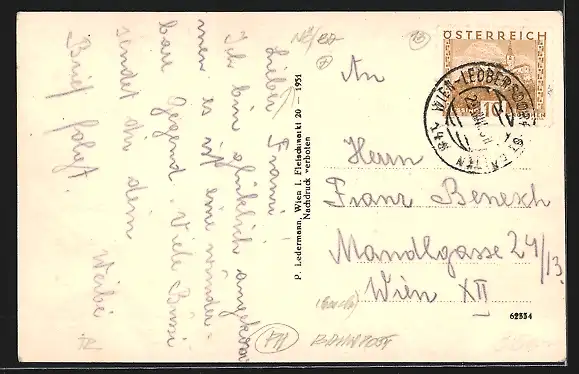 Lieber Franzi!
Ich bin glücklich angekom
men es ist eine wunder-
bare Gegend. Viele Bussi
sendet dir dein
Weibi
Brief folgt.
P. Ledermann, Wien I, Fleischmarkt 20 — 1931
Nachdruck verboten
ÖSTERREICH
10
GROSCHEN
WIEN-LEOBERSDORF
An
Herrn
Franz Benesch
Mandlgasse 24/13
Wien XII
62334
BAHNPOST